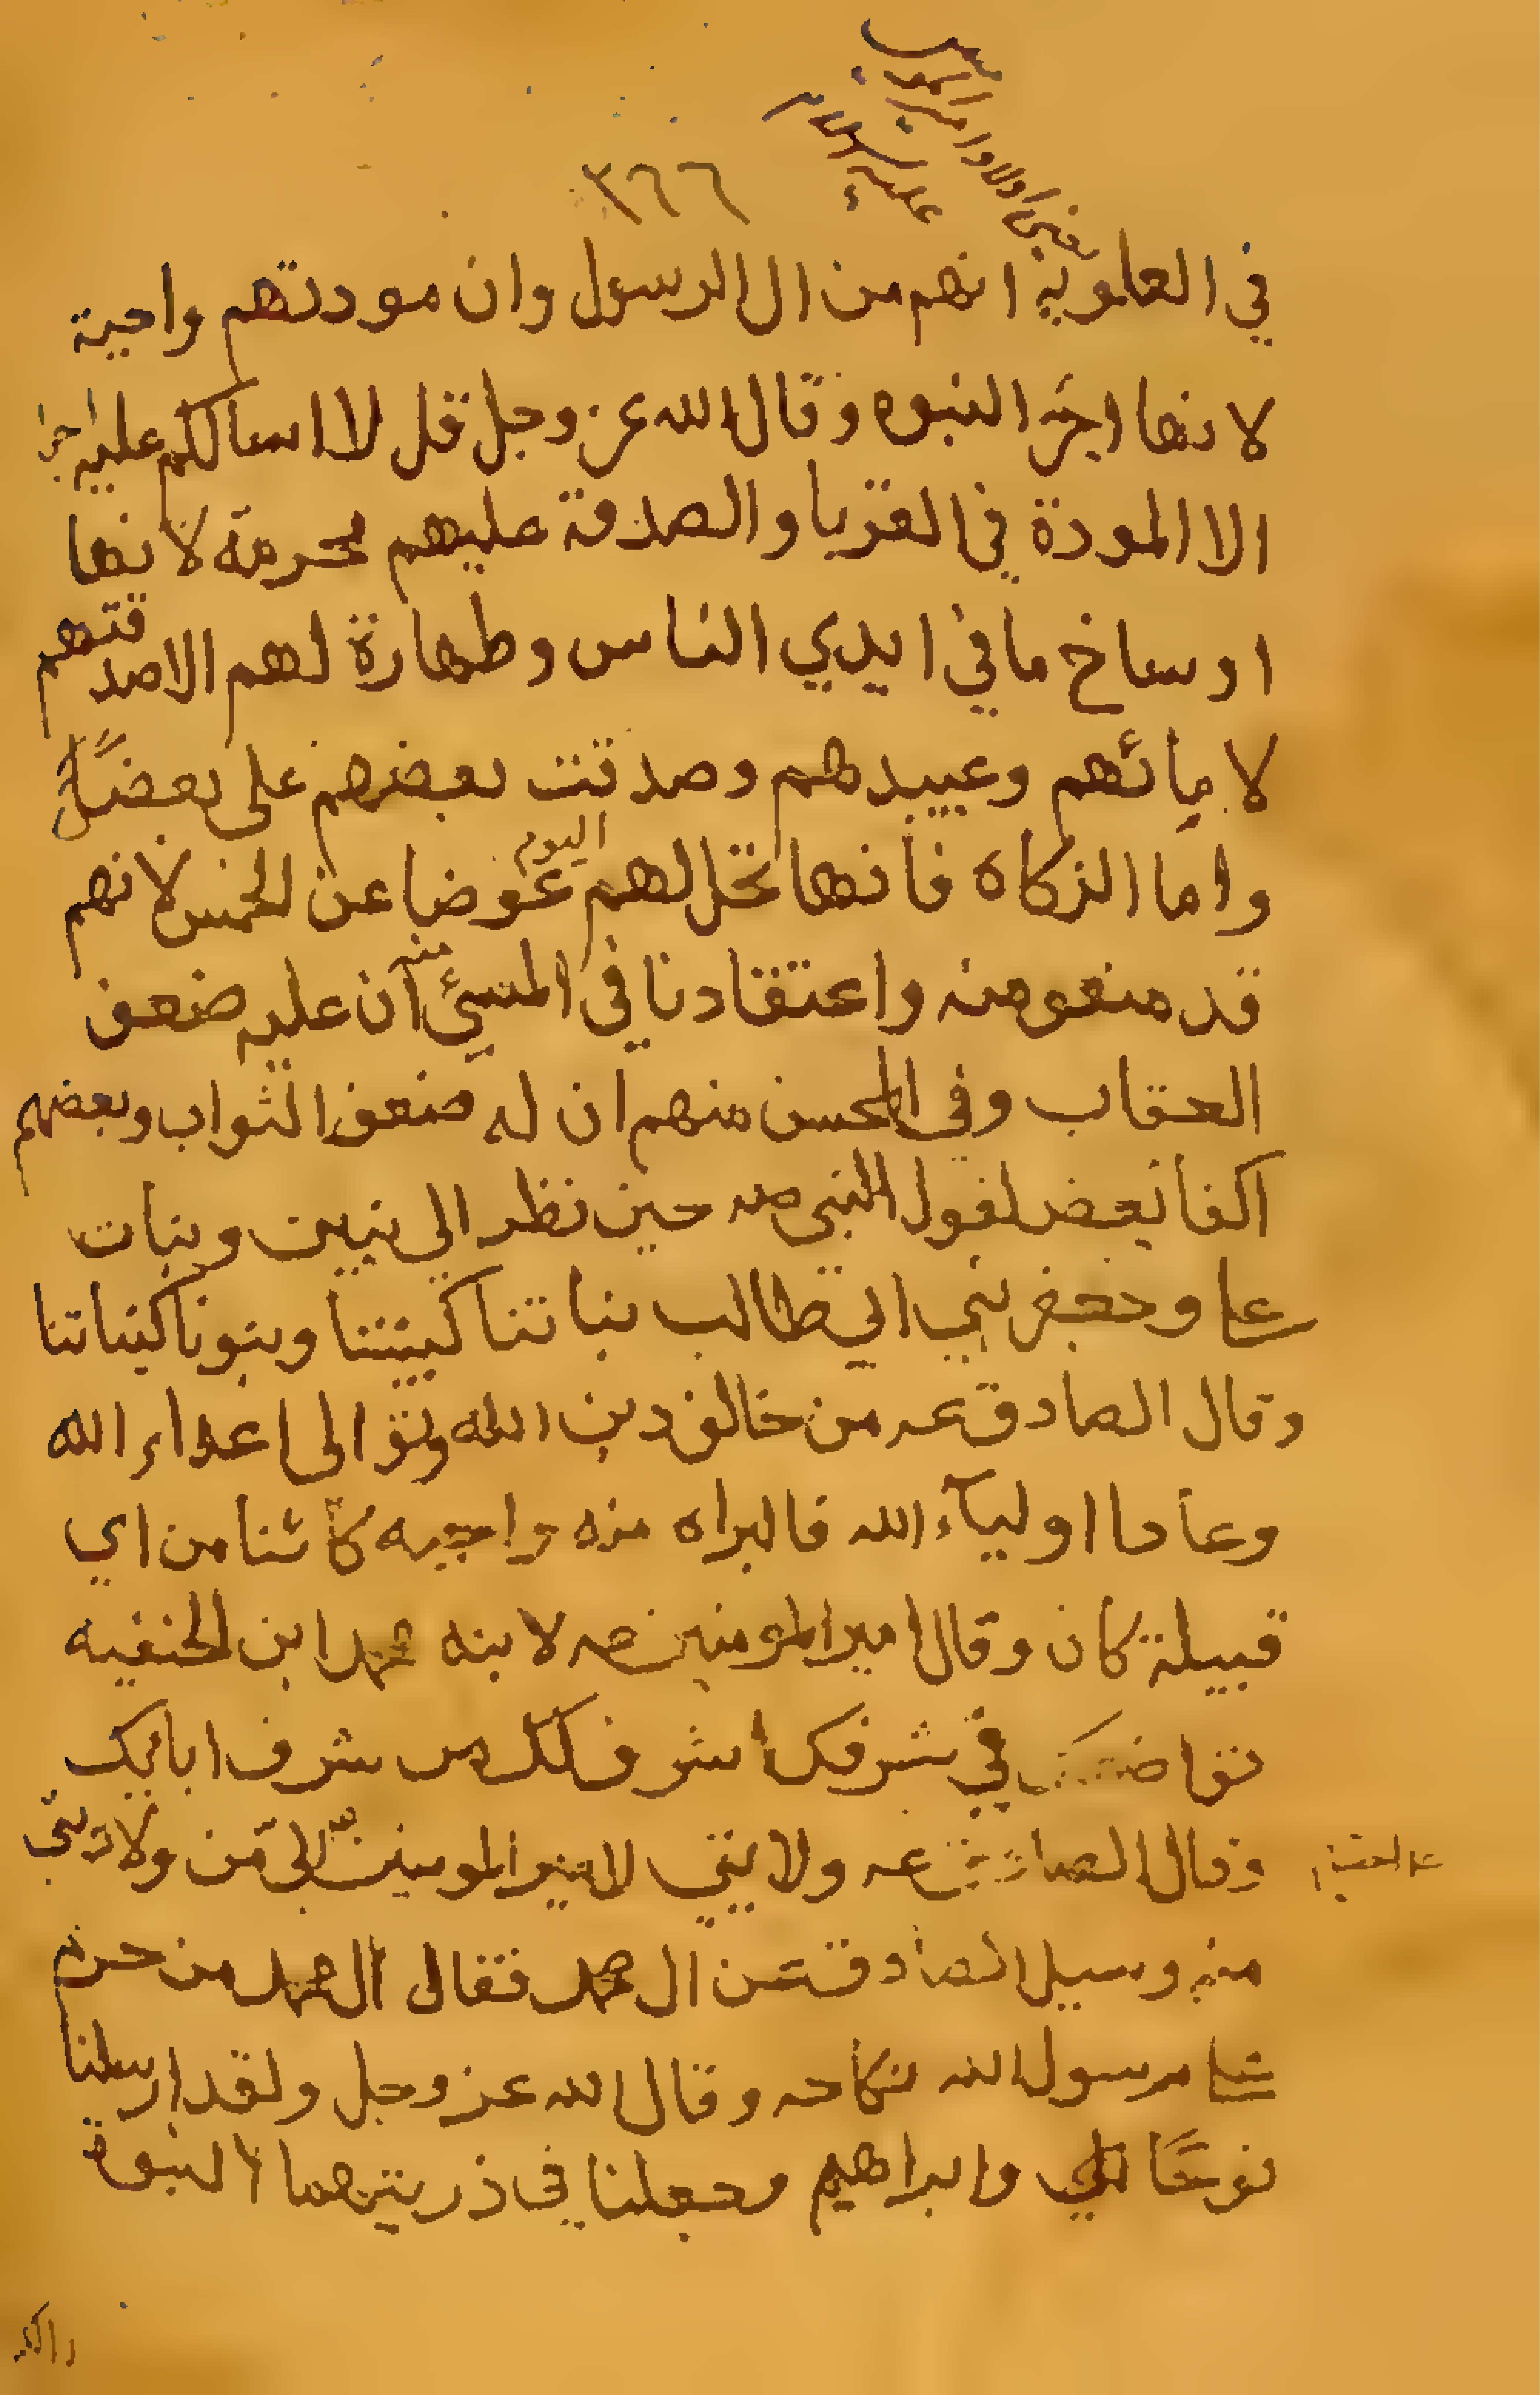 يعني اولاد امير المومنين
عليه السلام
٣٦٦
في العلوية انهم من ال الرسول وان موددتهم واجبة
لانها اجر النبوه وقال الله عز وجل قل لا اسالكم عليه اجرا
الا المودة في القربا والصدقة عليهم محرمة لانها
اوساخ ما في ايدي الناس وطهارة لهم الا صدقتهم
لاِمائهم وعبيدهم وصدقت بعضهم على بعضًا
واما الزكاه فانها تحل لهم اليوم عوضا عن الخمس لانهم
قد منعو منه واعتقادنا في المسئ منهم ان عليه ضعف
العقاب وفي المحسن منهم ان له ضعف الثواب وبعضهم
اكفا بعض لقول النبي صه حين نظر الى بنين وبنات
علي وجعفر بني ابي طالب بناتنا كبنينا وبنونا كبناتنا
وقال الصادق عه من خالف دين الله وتوالى اعداء الله
وعادا اولياء الله فالبراه منه واجبه كائنا من اي
قبيلة كان وقال امير المومنين صه لابنه محمد ابن الحنفيه
تواضعك في شرفك اشرف لك من شرف ابائك
وقال الصادق عه ولايتي لامير المومنين احب الي من ولادتي
منه وسيل الصادق عن ال محمد فقال ال محمد من حرم
على رسول الله نكاحه وقال الله عز وجل ولقد ارسلنا
نوحًا وابراهيم وجعلنا في ذريتهما النبوة